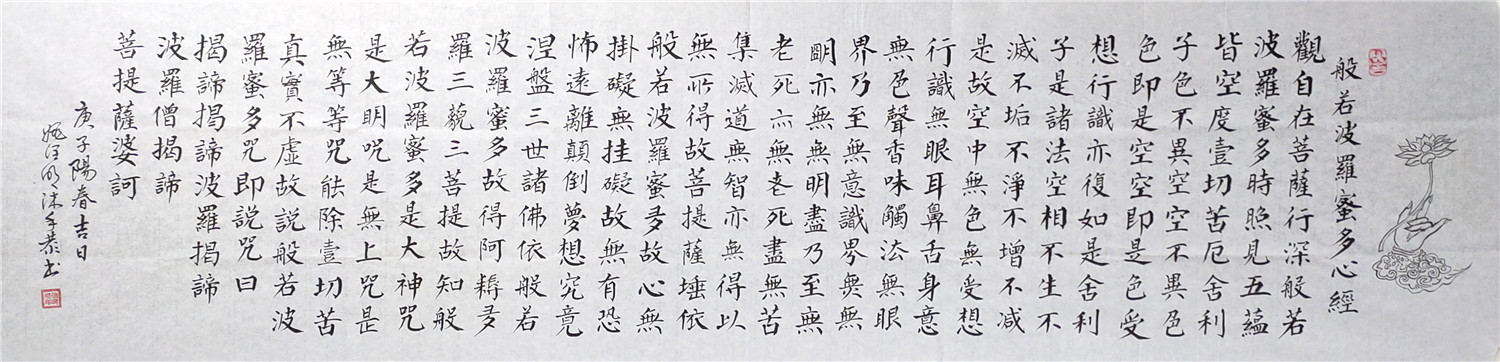 般若波羅蜜多心經
觀自在菩薩行深般若
波羅蜜多時照見五蘊
皆空度壹切苦厄舍利
子色不異空空不異色
色即是空空即是色受
想行識亦復如是舍利
子是諸法空相不生不
滅不垢不淨不增不減
是故空中無色無受想
行識無眼耳鼻舌身意
無色聲香味觸法無眼
界乃至無意識界無無
明亦無無明盡乃至無
老死亦無老死盡無苦
集滅道無智亦無得以
無所得故菩提薩埵依
般若波羅蜜多故心無
掛礙無挂礙故無有恐
怖遠離顛倒夢想究竟
涅盤三世諸佛依般若
波羅蜜多故得阿耨多
羅三藐三菩提故知般
若波羅蜜多是大神咒
是大明咒是無上咒是
無等等咒能除壹切苦
真實不虛故說般若波
羅蜜多咒即說咒曰
揭諦揭諦波羅揭諦
波羅僧揭諦
菩提薩婆訶
庚子陽春吉日
沐手恭書